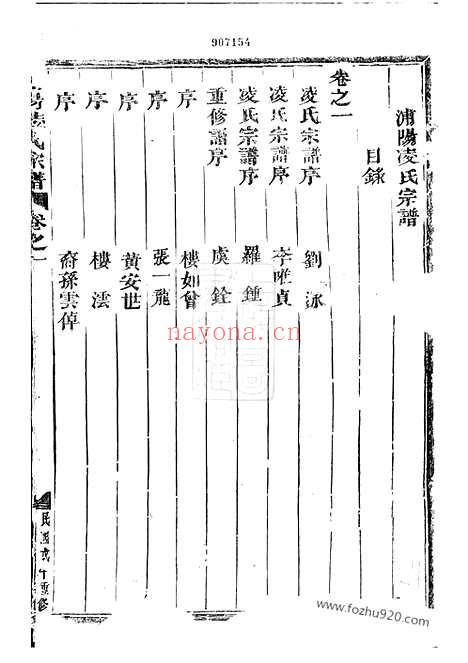 907154
浦陽凌氏宗譜
目錄
卷之一
凌氏宗譜序 劉泳
凌氏宗譜序 李唯貞
凌氏宗譜序 羅鍾
重修譜序 虞銓
序 樓如曾
序 張一龍
序 黃安世
序 樓澐
序 裔孫雲倬
凌氏宗譜 卷之一
民國戊午重修
nayona.cn
www.fozhu920.com